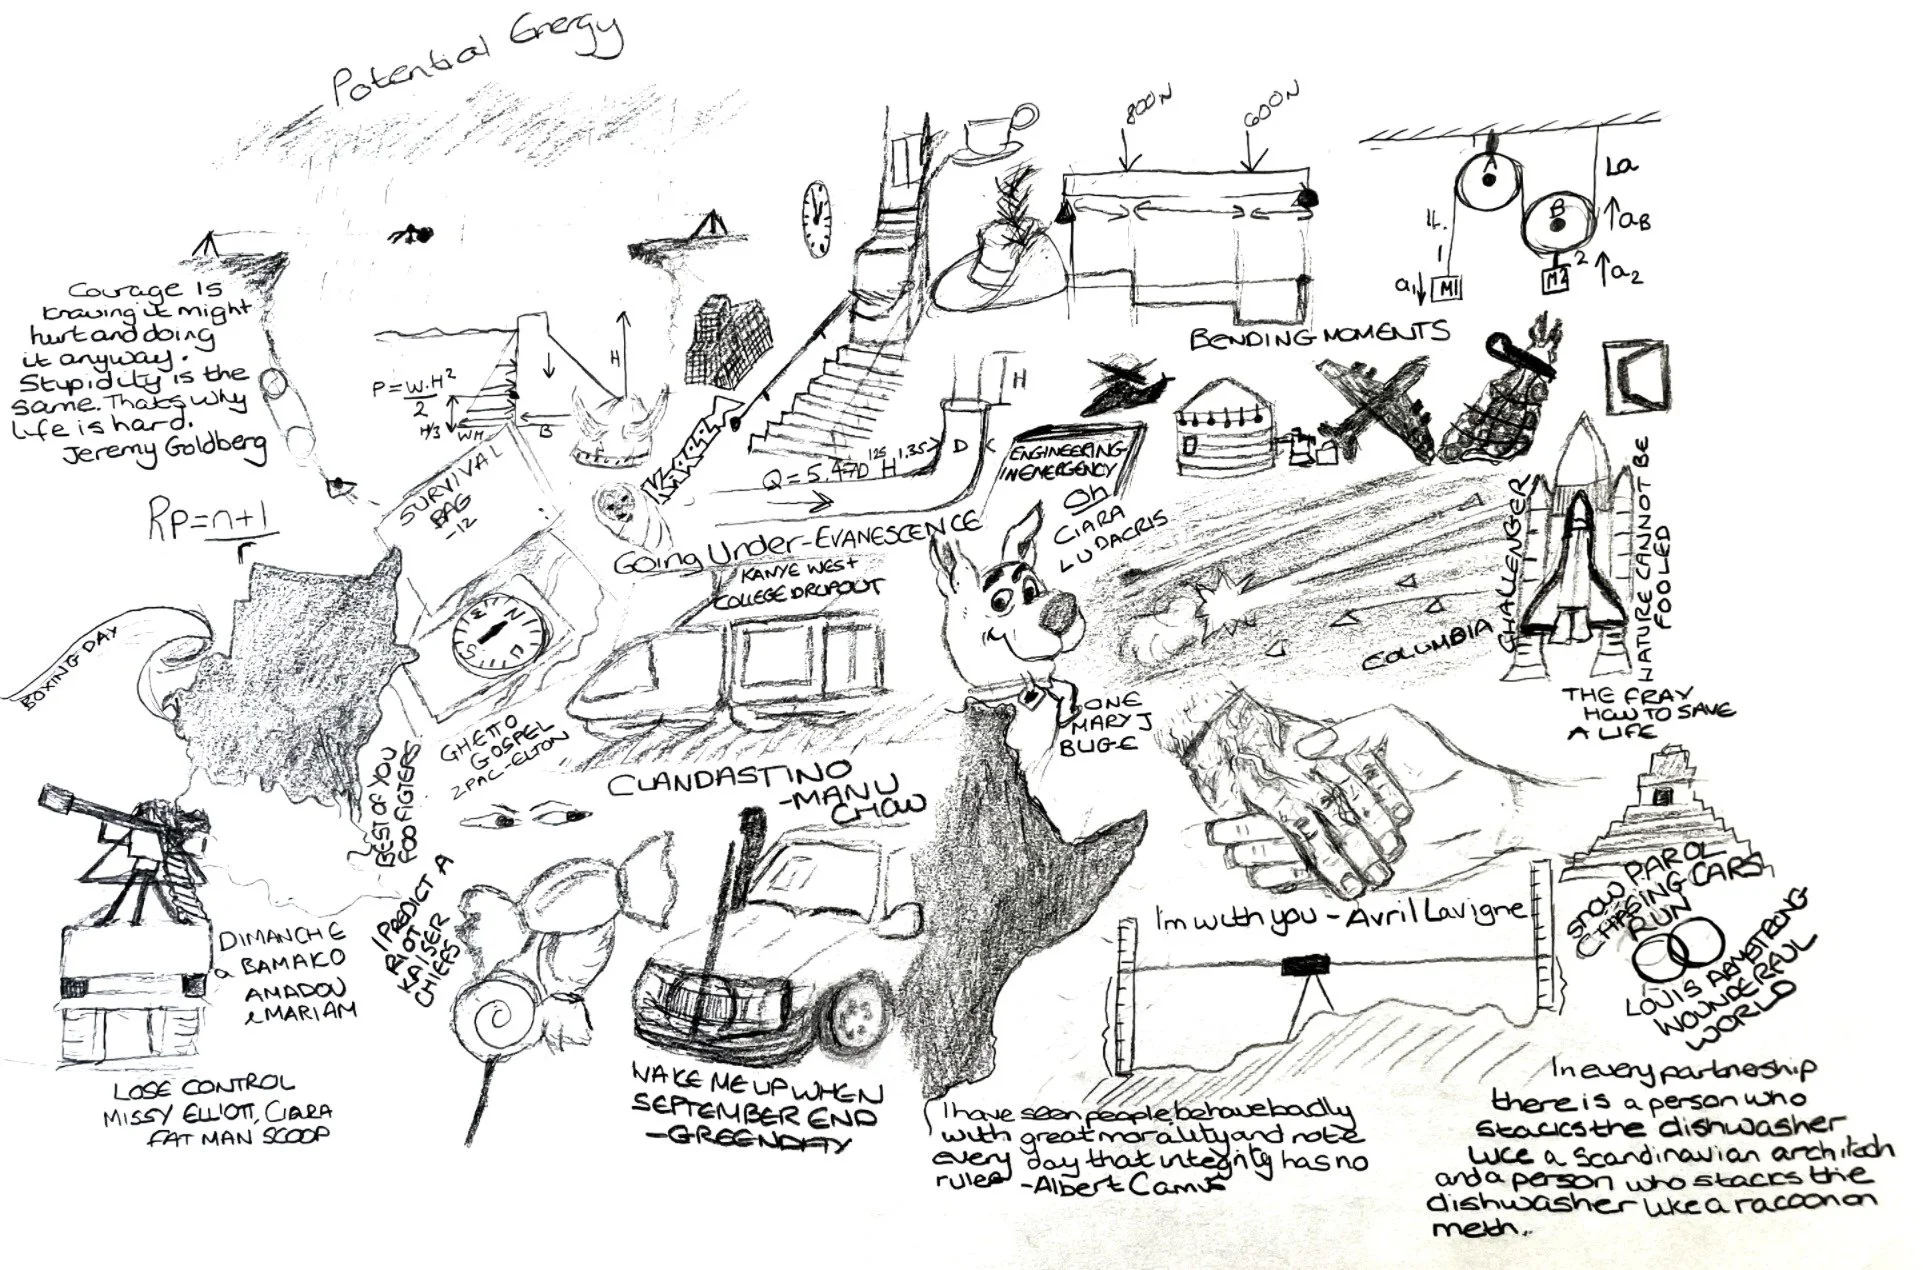 Potential Energy
800N
600N
A
La
B
aB
1
2
a1
M1
M2
a2
BENDING MOMENTS
Courage is
knowing it might
hurt and doing
it anyway.
Stupidity is the
same. That's why
life is hard.
Jeremy Goldberg
P=W.H²
2
H/3
WH
B
H
H
D
Q = 5.47D 1.25 H 1.35
ENGINEERING
IN EMERGENCY
Oh
CIARA
LUDACRIS
SURVIVAL
BAG
-12
Rp=n+1
r
Going Under-EVANESCENCE
KANYE WEST
COLLEGE DROPOUT
N
S
BOXING DAY
CHALLENGER
COLUMBIA
NATURE CANNOT BE
FOOLED
THE FRAY
HOW TO SAVE
A LIFE
ONE
MARY J
BLIGE
GHETTO
GOSPEL
2PAC-ELTON
BEST OF YOU
FOO FIGTERS
CLANDASTINO
-MANU
CHOW
I PREDICT A
RIOT
KAISER
CHIEFS
DIMANCHE
a BAMAKO
AMADOU
e MARIAM
LOSE CONTROL
MISSY ELLIOTT, CIARA
FAT MAN SCOOP
WAKE ME UP WHEN
SEPTEMBER END
-GREENDAY
I'm with you - Avril Lavigne
SNOW PAROL
CHASING CARS
RUN
LOUIS ARMSTRONG
WOUNDERFUL
WORLD
I have seen people behave badly
with great morality and note
every day that integrity has no
rules -Albert Camus
In every partnership
there is a person who
stacks the dishwasher
like a Scandinavian architech
and a person who stacks the
dishwasher like a racoon on
meth.